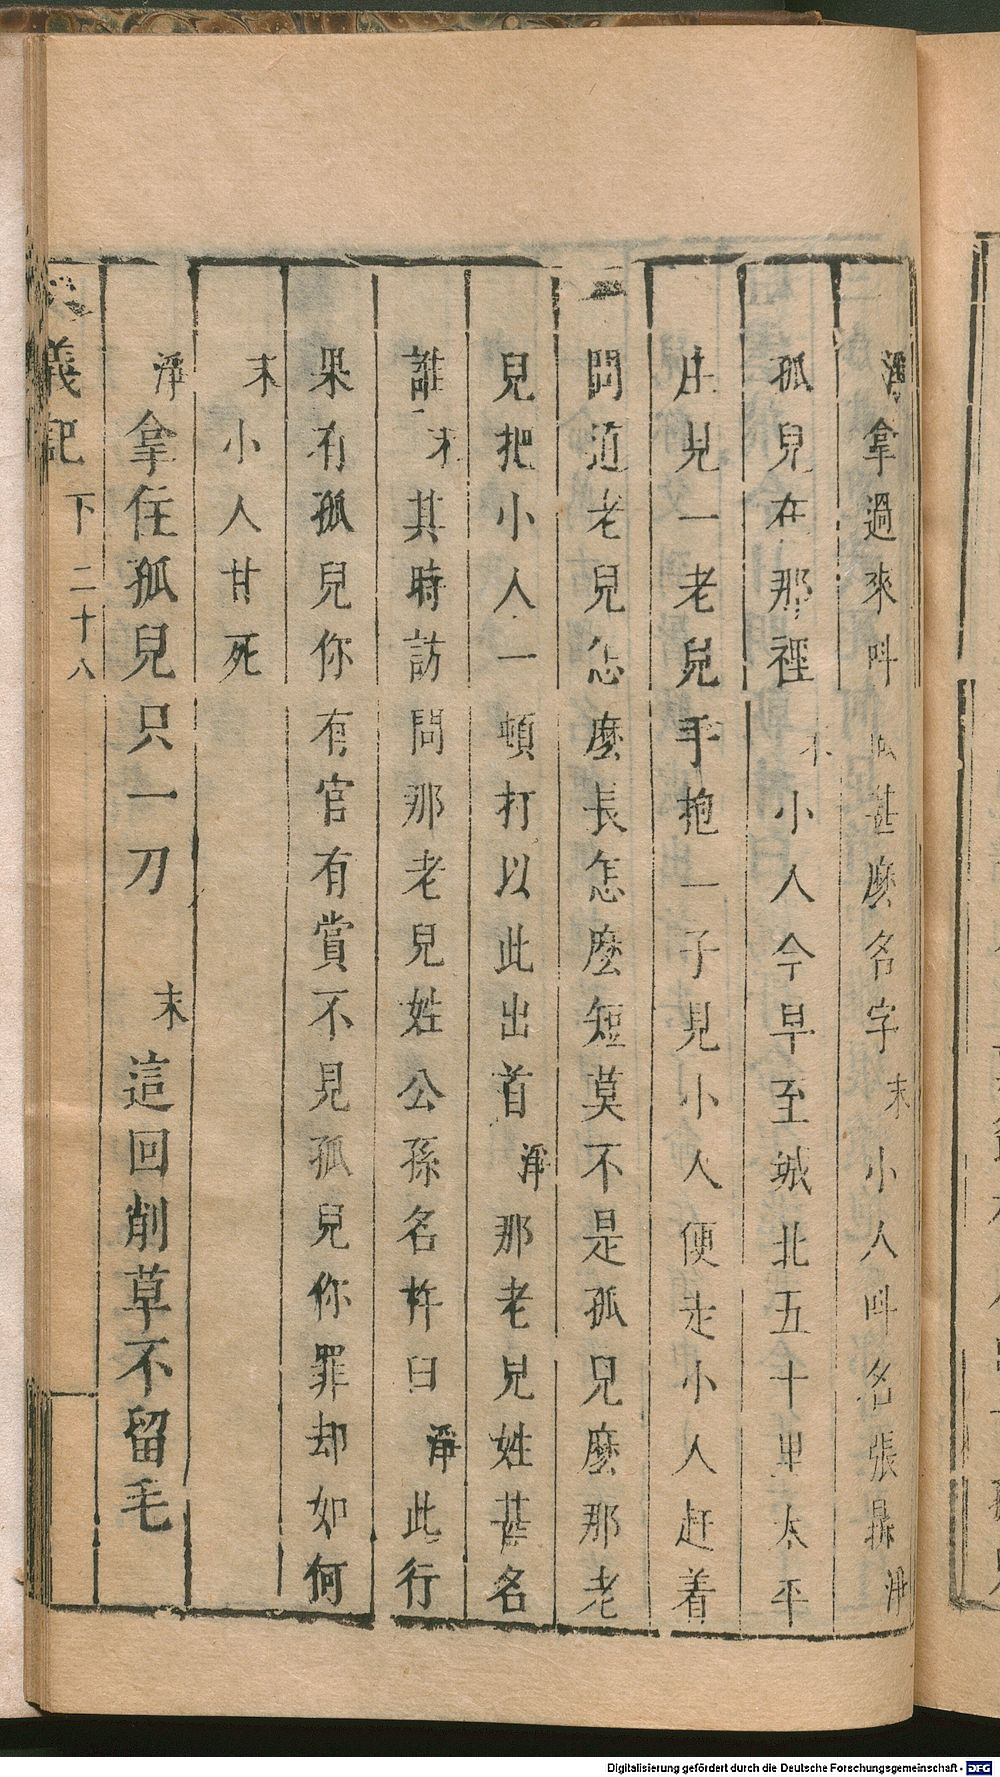 淨拿過來叫甚麼名字末小人叫名張鼎淨
孤兒在那裡末小人今早至城北五十里太平
庄見一老兒手抱一子見小人便走小人赶着
問道老兒怎麼長怎麼短莫不是孤兒麼那老
兒把小人一頓打以此出首淨那老兒姓甚名
誰末其時訪問那老兒姓公孫名杵臼淨此行
果有孤兒你有官有賞不見孤兒你罪却如何
末小人甘死
淨拿住孤兒只一刀 末這回削草不留毛
義記 下 二十八
Digitalisierung gefördert durch die Deutsche Forschungsgemeinschaft - DFG